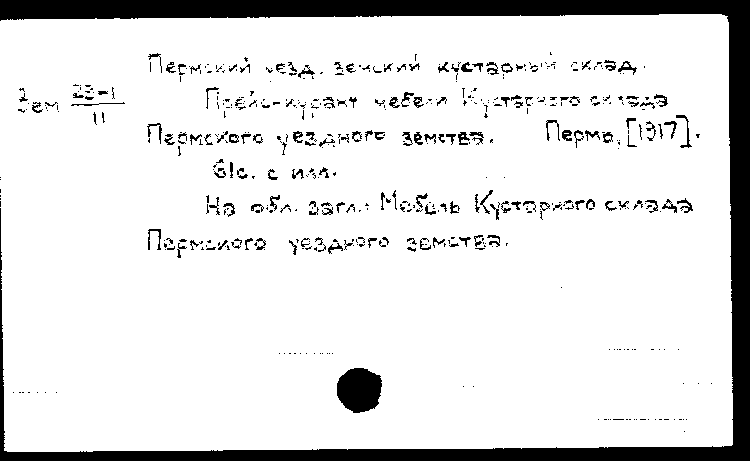 Пермский уезд. земский кустарный склад.
Зем 23-1/11
Прейс-курант мебели Кустарного склада
Пермского уездного земства. Пермь, [1917].
61с. с илл.
На обл. загл.: Мебель Кустарного склада
Пермского уездного земства.